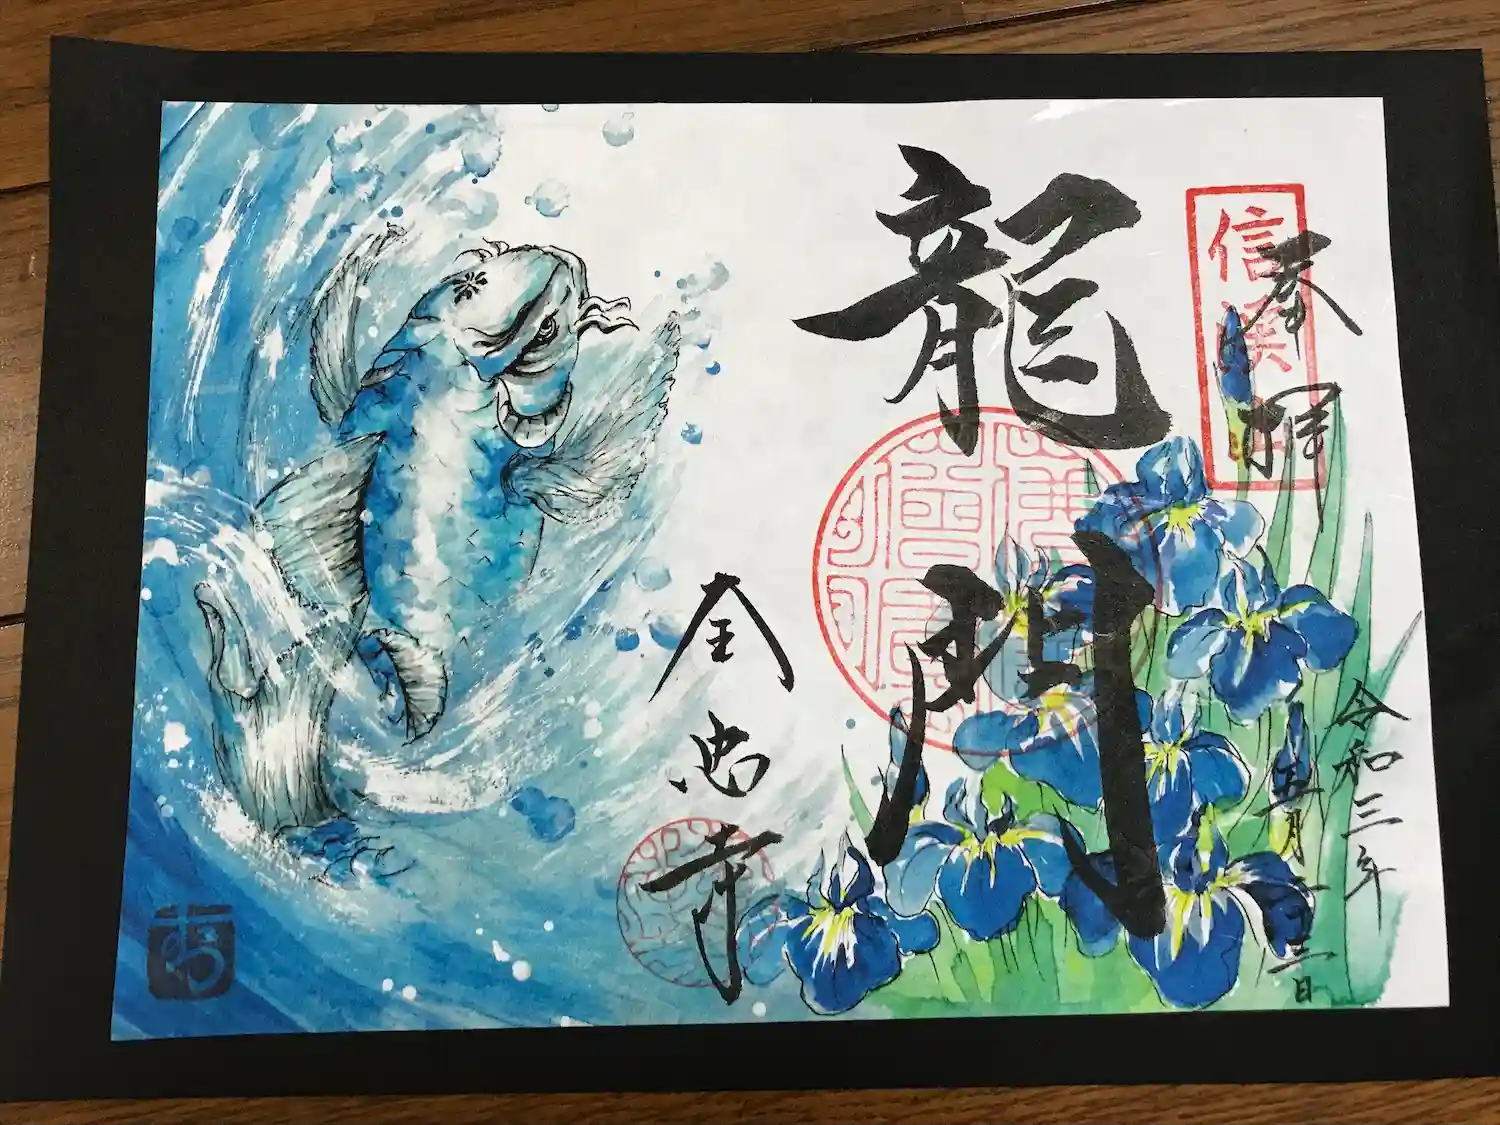 奉拝
信渓山
龍門
令和三年
五月二十三日
全忠寺
福